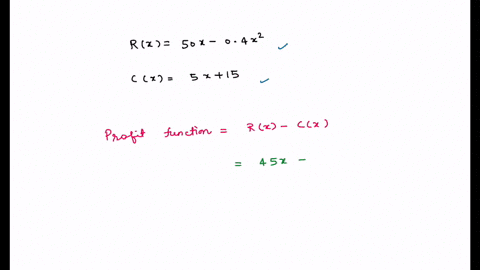 R(x) = 50x - 0.4x²
C(x) = 5x+15
Profit function = R(x) - C(x)
= 45x -